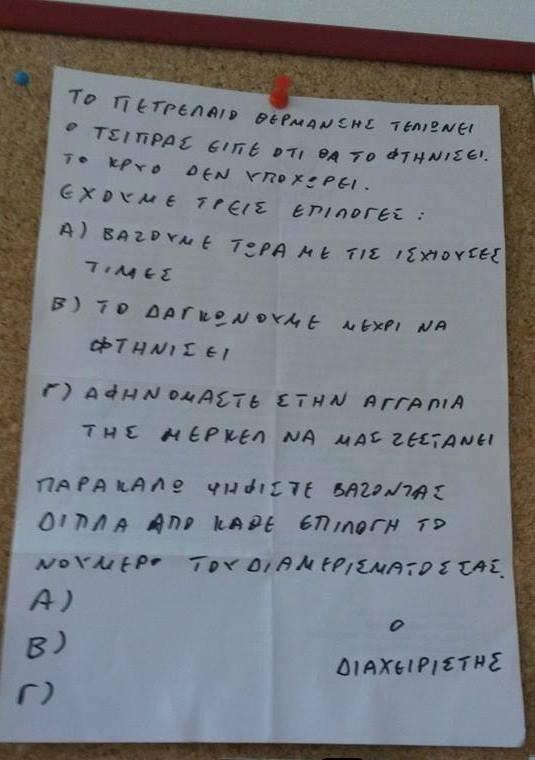 ΤΟ ΠΕΤΡΕΛΑΙΟ ΘΕΡΜΑΝΣΗΣ ΤΕΛΙΩΝΕΙ
Ο ΤΣΙΠΡΑΣ ΕΙΠΕ ΟΤΙ ΘΑ ΤΟ ΦΤΗΝΙΣΕΙ.
ΤΟ ΚΡΥΟ ΔΕΝ ΥΠΟΧΩΡΕΙ.
ΕΧΟΥΜΕ ΤΡΕΙΣ ΕΠΙΛΟΓΕΣ:
Α) ΒΑΖΟΥΜΕ ΤΩΡΑ ΜΕ ΤΙΣ ΙΣΧΙΟΥΣΕΣ
ΤΙΜΕΣ
Β) ΤΟ ΔΑΓΚΩΝΟΥΜΕ ΜΕΧΡΙ ΝΑ
ΦΤΗΝΙΣΕΙ
Γ) ΑΦΗΝΟΜΑΣΤΕ ΣΤΗΝ ΑΓΓΑΛΙΑ
ΤΗΣ ΜΕΡΚΕΛ ΝΑ ΜΑΣ ΖΕΣΤΑΝΕΙ
ΠΑΡΑΚΑΛΩ ΨΗΦΙΣΤΕ ΒΑΖΟΝΤΑΣ
ΔΙΠΛΑ ΑΠΟ ΚΑΘΕ ΕΠΙΛΟΓΗ ΤΟ
ΝΟΥΜΕΡΟ ΤΟΥ ΔΙΑΜΕΡΙΣΜΑΤΟΣ ΣΑΣ.
Α)
Β)
Γ)
Ο
ΔΙΑΧΕΙΡΙΣΤΗΣ